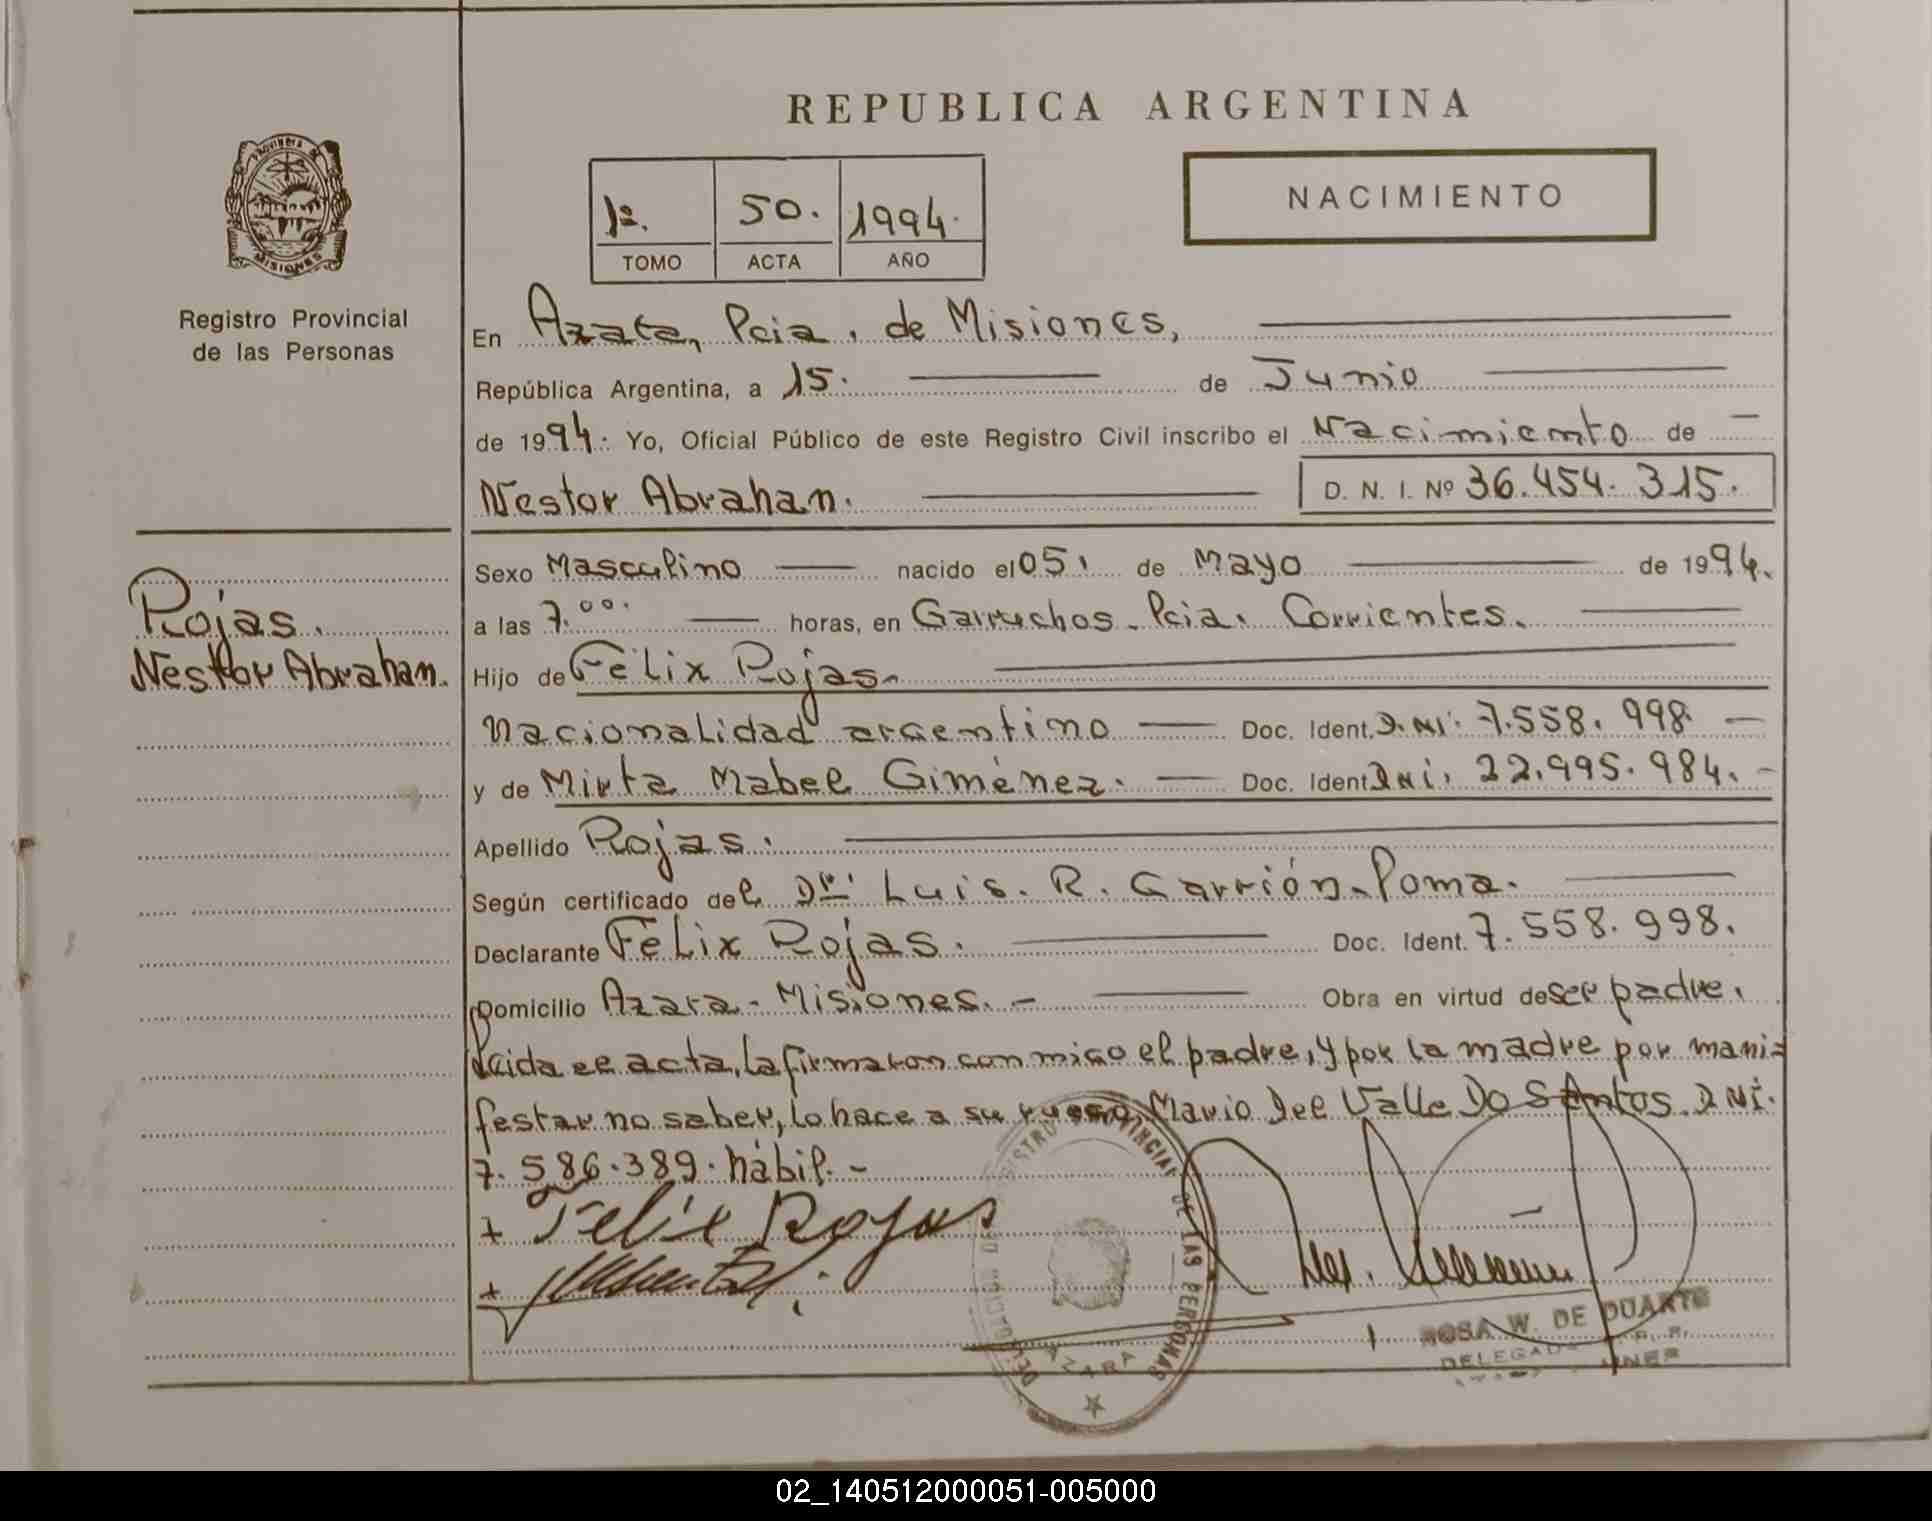 REPUBLICA ARGENTINA
PROVINCIA DE
MISIONES
Registro Provincial
de las Personas
1º. 50. 1994.
TOMO ACTA AÑO
NACIMIENTO
En Azara, Pcia. de Misiones,
República Argentina, a 15. de Junio
de 1994. Yo, Oficial Público de este Registro Civil inscribo el Nacimiento de
Nestor Abrahan. D. N. I. Nº 36.454.315.
Rojas.
Nestor Abrahan.
Sexo Masculino nacido el 05. de Mayo de 1994.
a las 7.00. horas, en Garruchos. Pcia. Corrientes.
Hijo de Félix Rojas.
Nacionalidad argentino Doc. Ident. D.NI. 7.558.998.
y de Mirta Mabel Giménez. Doc. Ident. DNI. 22.995.984.
Apellido Rojas.
Según certificado del Dr. Luis. R. Garrión. Poma.
Declarante Félix Rojas. Doc. Ident. 7.558.998.
Domicilio Azara - Misiones. Obra en virtud de ser padre.
Leida el acta, la firmaron conmigo el padre, y por la madre por mani=
festar no saber, lo hace a su ruego, Mario Del Valle Do Santos. D NI.
7.586.389. hábil.-
+ Felix Rojas
+
REGISTRO PROVINCIAL DE LAS PERSONAS
AZARA
ROSA W. DE DUARTE
DELEGADA
02_140512000051-005000